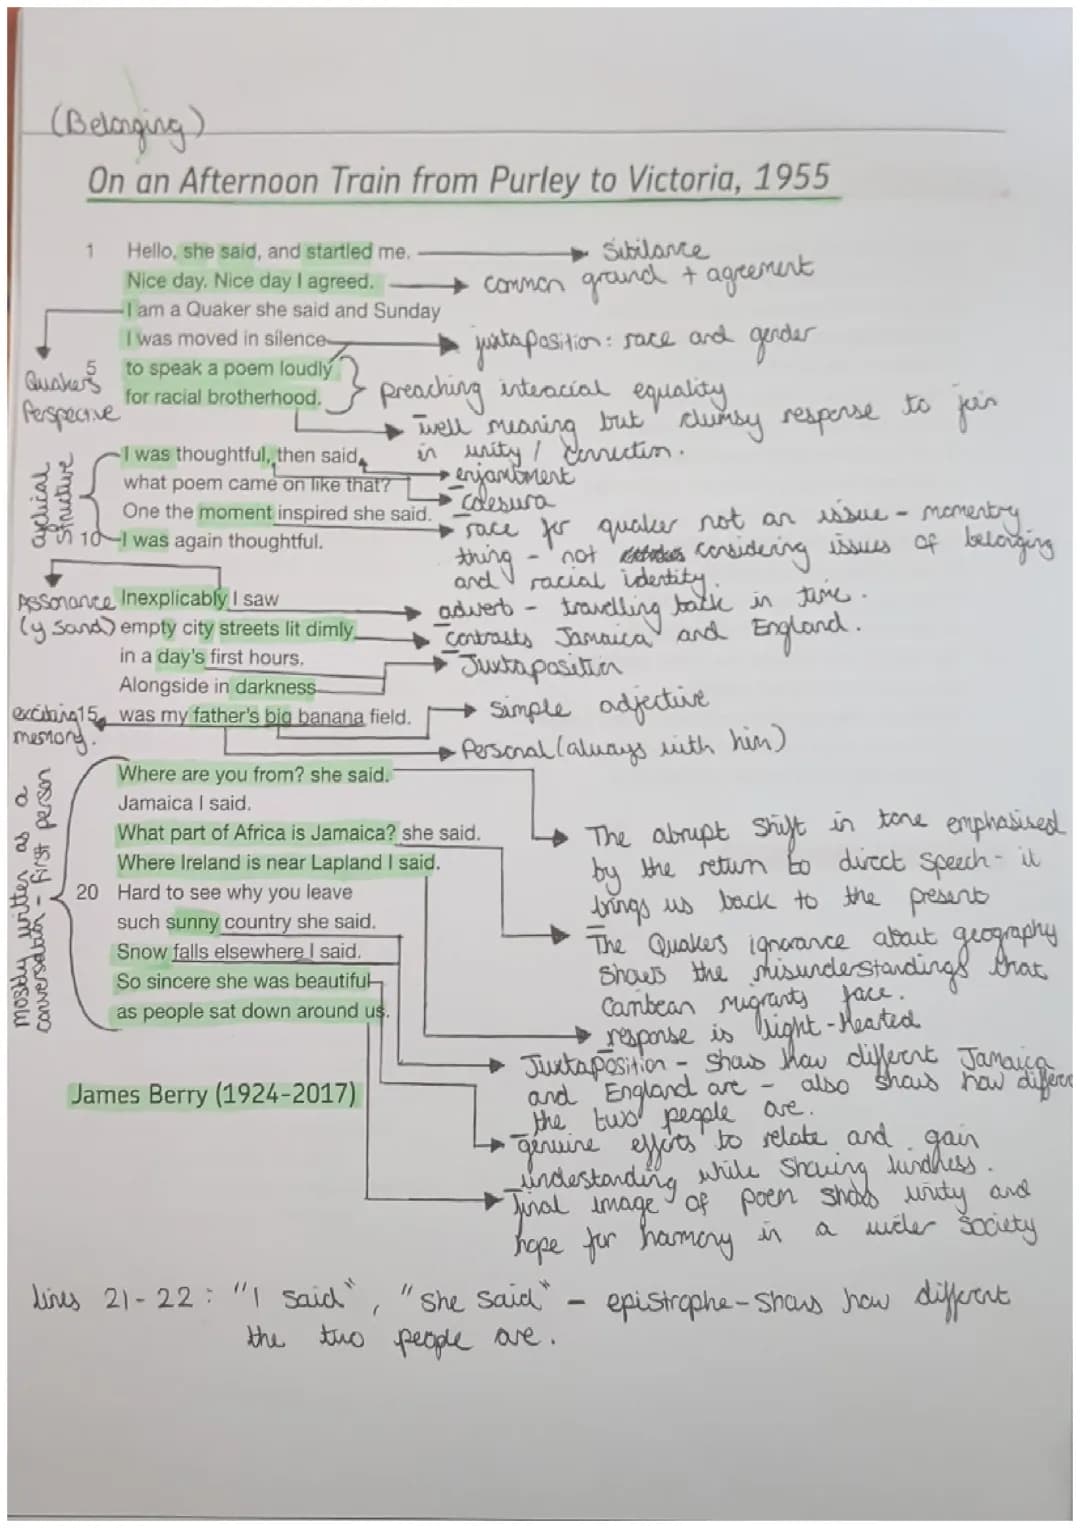 (Belonging)
On an Afternoon Train from Purley to Victoria, 1955
1 Hello, she said, and startled me.
Sibilance
Nice day. Nice day I agreed.
common ground + agreement
I am a Quaker she said and Sunday
I was moved in silence
juxtaposition: race and gender
5 to speak a poem loudly
for racial brotherhood.
Quakers
Perspective
preaching interacial equality
well meaning but clumsy response to join
in unity / connection.
I was thoughtful, then said,
enjambment
what poem came on like that?
caesura
One the moment inspired she said.
10 I was again thoughtful.
cyclical
structure
race for quaker not an issue - momentry
thing - not considering issues of belonging
and racial identity.
Inexplicably I saw
Assonance
(y sand)
advert - travelling back in time.
empty city streets lit dimly
contrasts Jamaica and England.
in a day's first hours.
Juxtaposition
Alongside in darkness
15 was my father's big banana field.
exciting
memory.
simple adjective
Personal (always with him)
Where are you from? she said.
Jamaica I said.
What part of Africa is Jamaica? she said.
Where Ireland is near Lapland I said.
20 Hard to see why you leave
such sunny country she said.
Snow falls elsewhere I said.
So sincere she was beautiful
as people sat down around us.
mostly written as a
conversation - first person
The abrupt shift in tone emphasised
by the return to direct speech - it
brings us back to the present
The Quakers ignorance about geography
shows the misunderstandings that
Caribean migrants face.
response is light-hearted
Juxtaposition - shows how different Jamaica
and England are - also shows how differe
the two people are.
genuine efforts to relate and gain
understanding while sharing kindness.
final image of poem shows unity and
hope for harmony in a wider society
James Berry (1924-2017)
lines 21-22: "I said", "she said" - epistrophe - shows how different
the two people are.